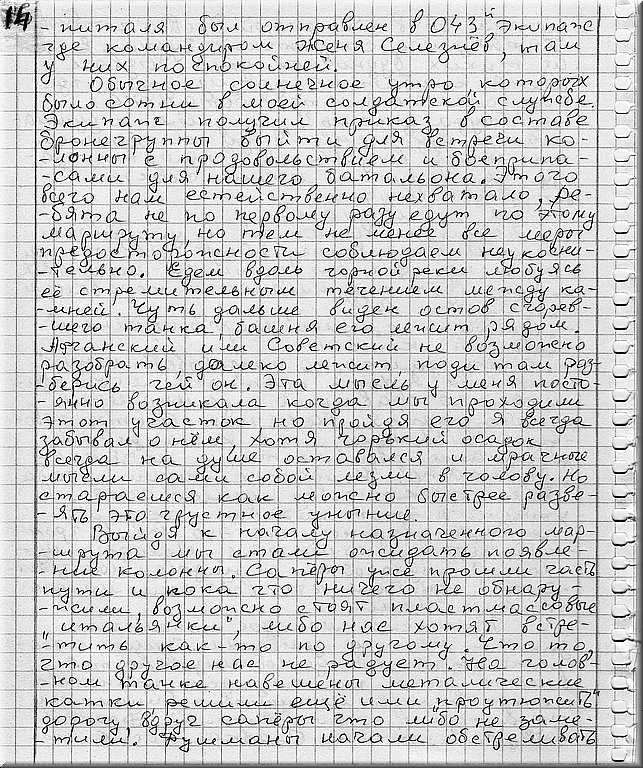 14
- питаля был отправлен в 043й Экипаж
где командиром Женя Селезнёв, там
у них поспокойней.
Обычное солнечное утро, которых
было сотни в моей солдатской службе.
Экипаж получил приказ в составе
бронегруппы выйти для встречи ко-
-лонны с продовольствием и боеприпа-
-сами для нашего батальона. Этого
всего нам естейственно нехватало, ре-
-бята не по первому разу едут по этому
маршруту, но тем не менее все меры
предосторожности соблюдаем неукосни-
-тельно. Едем вдоль горной реки любуясь
её стремительным течением между ка-
-мней. Чуть дальше виден остов сгорев-
-шего танка, башня его лежит рядом.
Афганский или Советский не возможно
разобрать, далеко лежит, поди там раз-
-берись чей он. Эта мысль у меня посто-
-янно возникала когда мы проходили
этот участок, но пройдя его я всегда
забывал о нём, хотя горький осадок
всегда на душе оставался и мрачные
мысли сами собой лезли в голову. Но
стараешся как можно быстрее разве-
-ять это грустное уныние.
Выйдя к началу назначенного мар-
-шрута мы стали ожидать появле-
-ние колонны. Сапёры уже прошли часть
пути и пока что ничего не обнару-
-жили, возможно стоят пластмассовые
„итальянки", либо нас хотят встре-
-тить как-то по другому. Что то,
что другое нас не радует. На голов-
-ном танке навешены металические
катки решили ещё ими „проутюжить"
дорогу, вдруг сапёры что либо не заме-
-тили. Душманы начали обстреливать